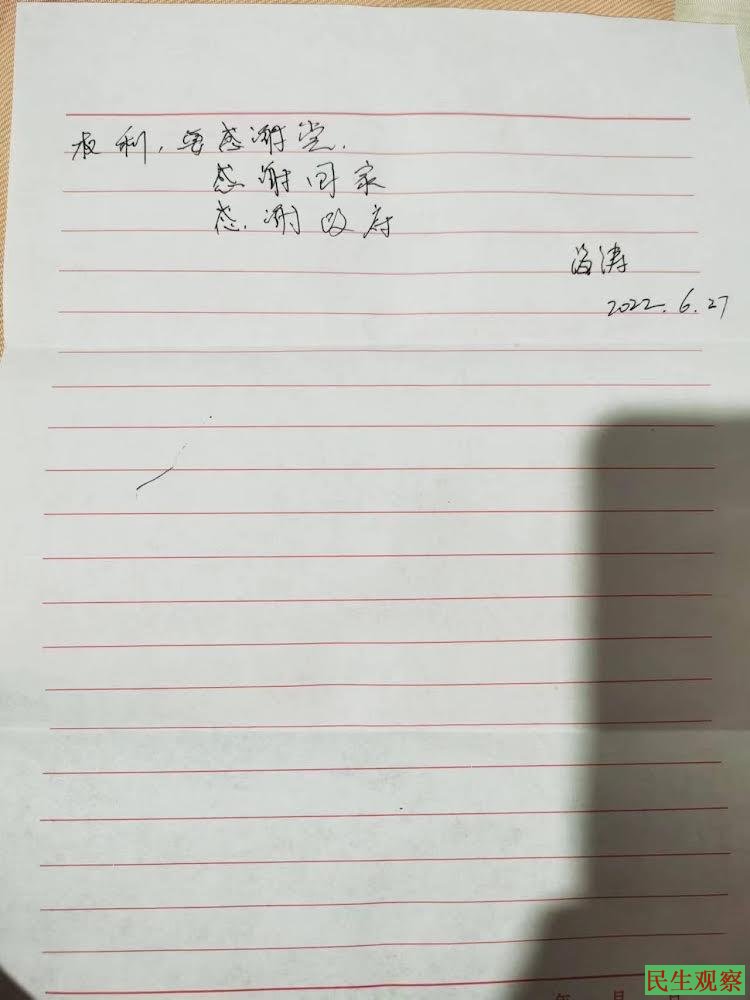 权利，要感谢党.
感谢国家
感谢政府
涛
2022.6.27
年 月
民生观察